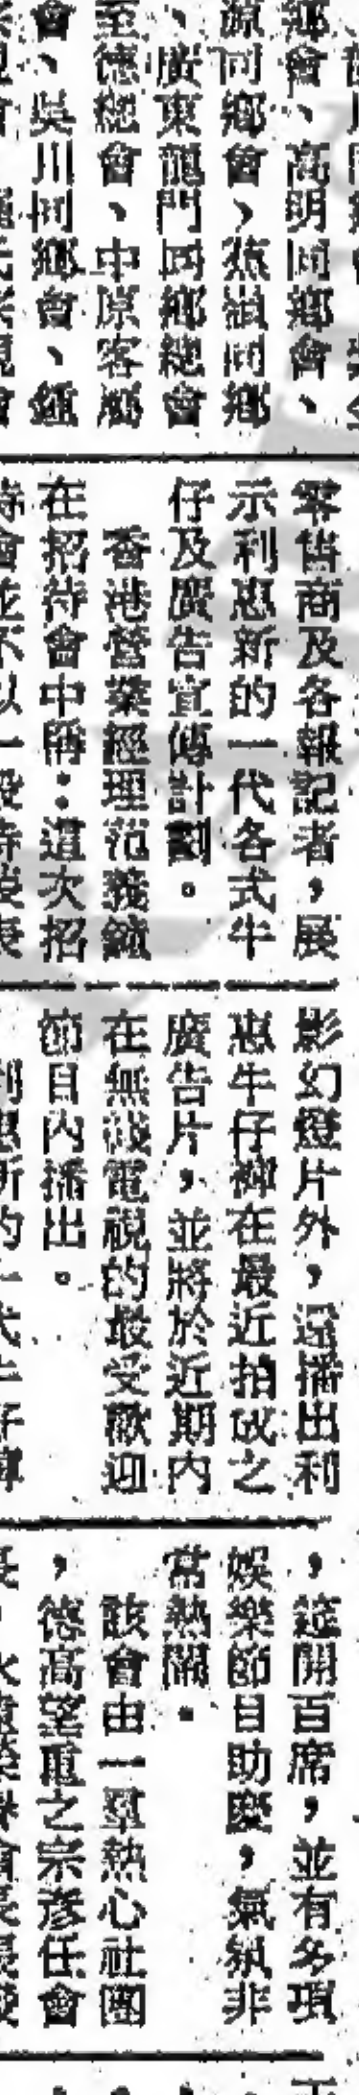 鄉會、高明同鄉會、
源同鄉會、蕉嶺同鄉
、廣東龍門同鄉總會
至德總會、中原客屬
會、吳川同鄉會、鍾
零售商及各報記者，展
示利惠新的一代各式牛
仔及廣告宣傳計劃。
香港營業經理范義鏞
在招待會中稱：這次招
待會並不以一般時裝表
影幻燈片外，還播出利
惠牛仔褲在最近拍成之
廣告片，並將於近期內
在無綫電視的最受歡迎
節目內播出。
利惠新的一代牛仔褲
，筵開百席，並有多項
娛樂節目助慶，氣氛非
常熱鬧。
該會由一羣熱心社團
，德高望重之宗彥任會